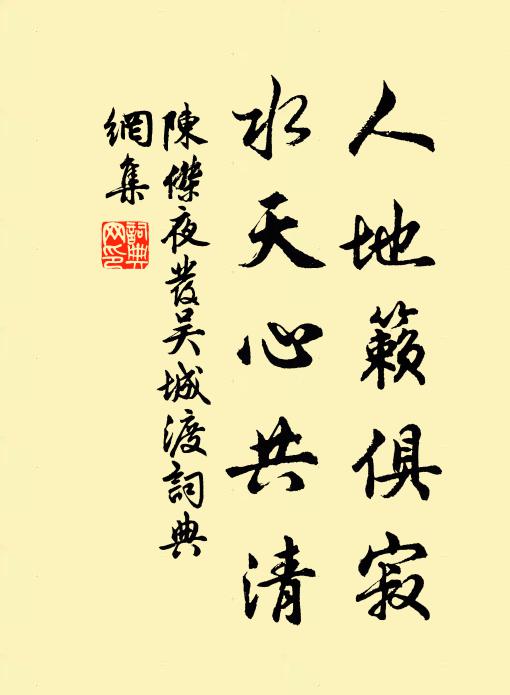 人地籟俱寂
水天心共清
陳傑夜發吴城渡詞典
網集
詞典
网印